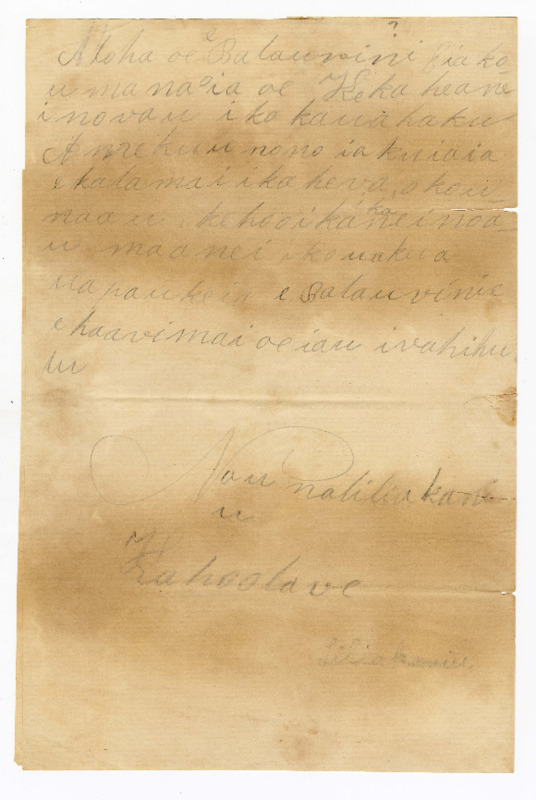 Aloha oe e Balauvini iako
u mana o ia oe Keka heane
inovau i ko kauahaku
A me kuu nono ia kuiaia
e kala mai i ka heva, o koiu
naau, ke hooi ka ka ne inoa
u maanei i ko uakua
ua paukeia e Balauvinie
e haavi mai oe iau i vahihu
u
Nau naliliu kani
u
Kahoolave